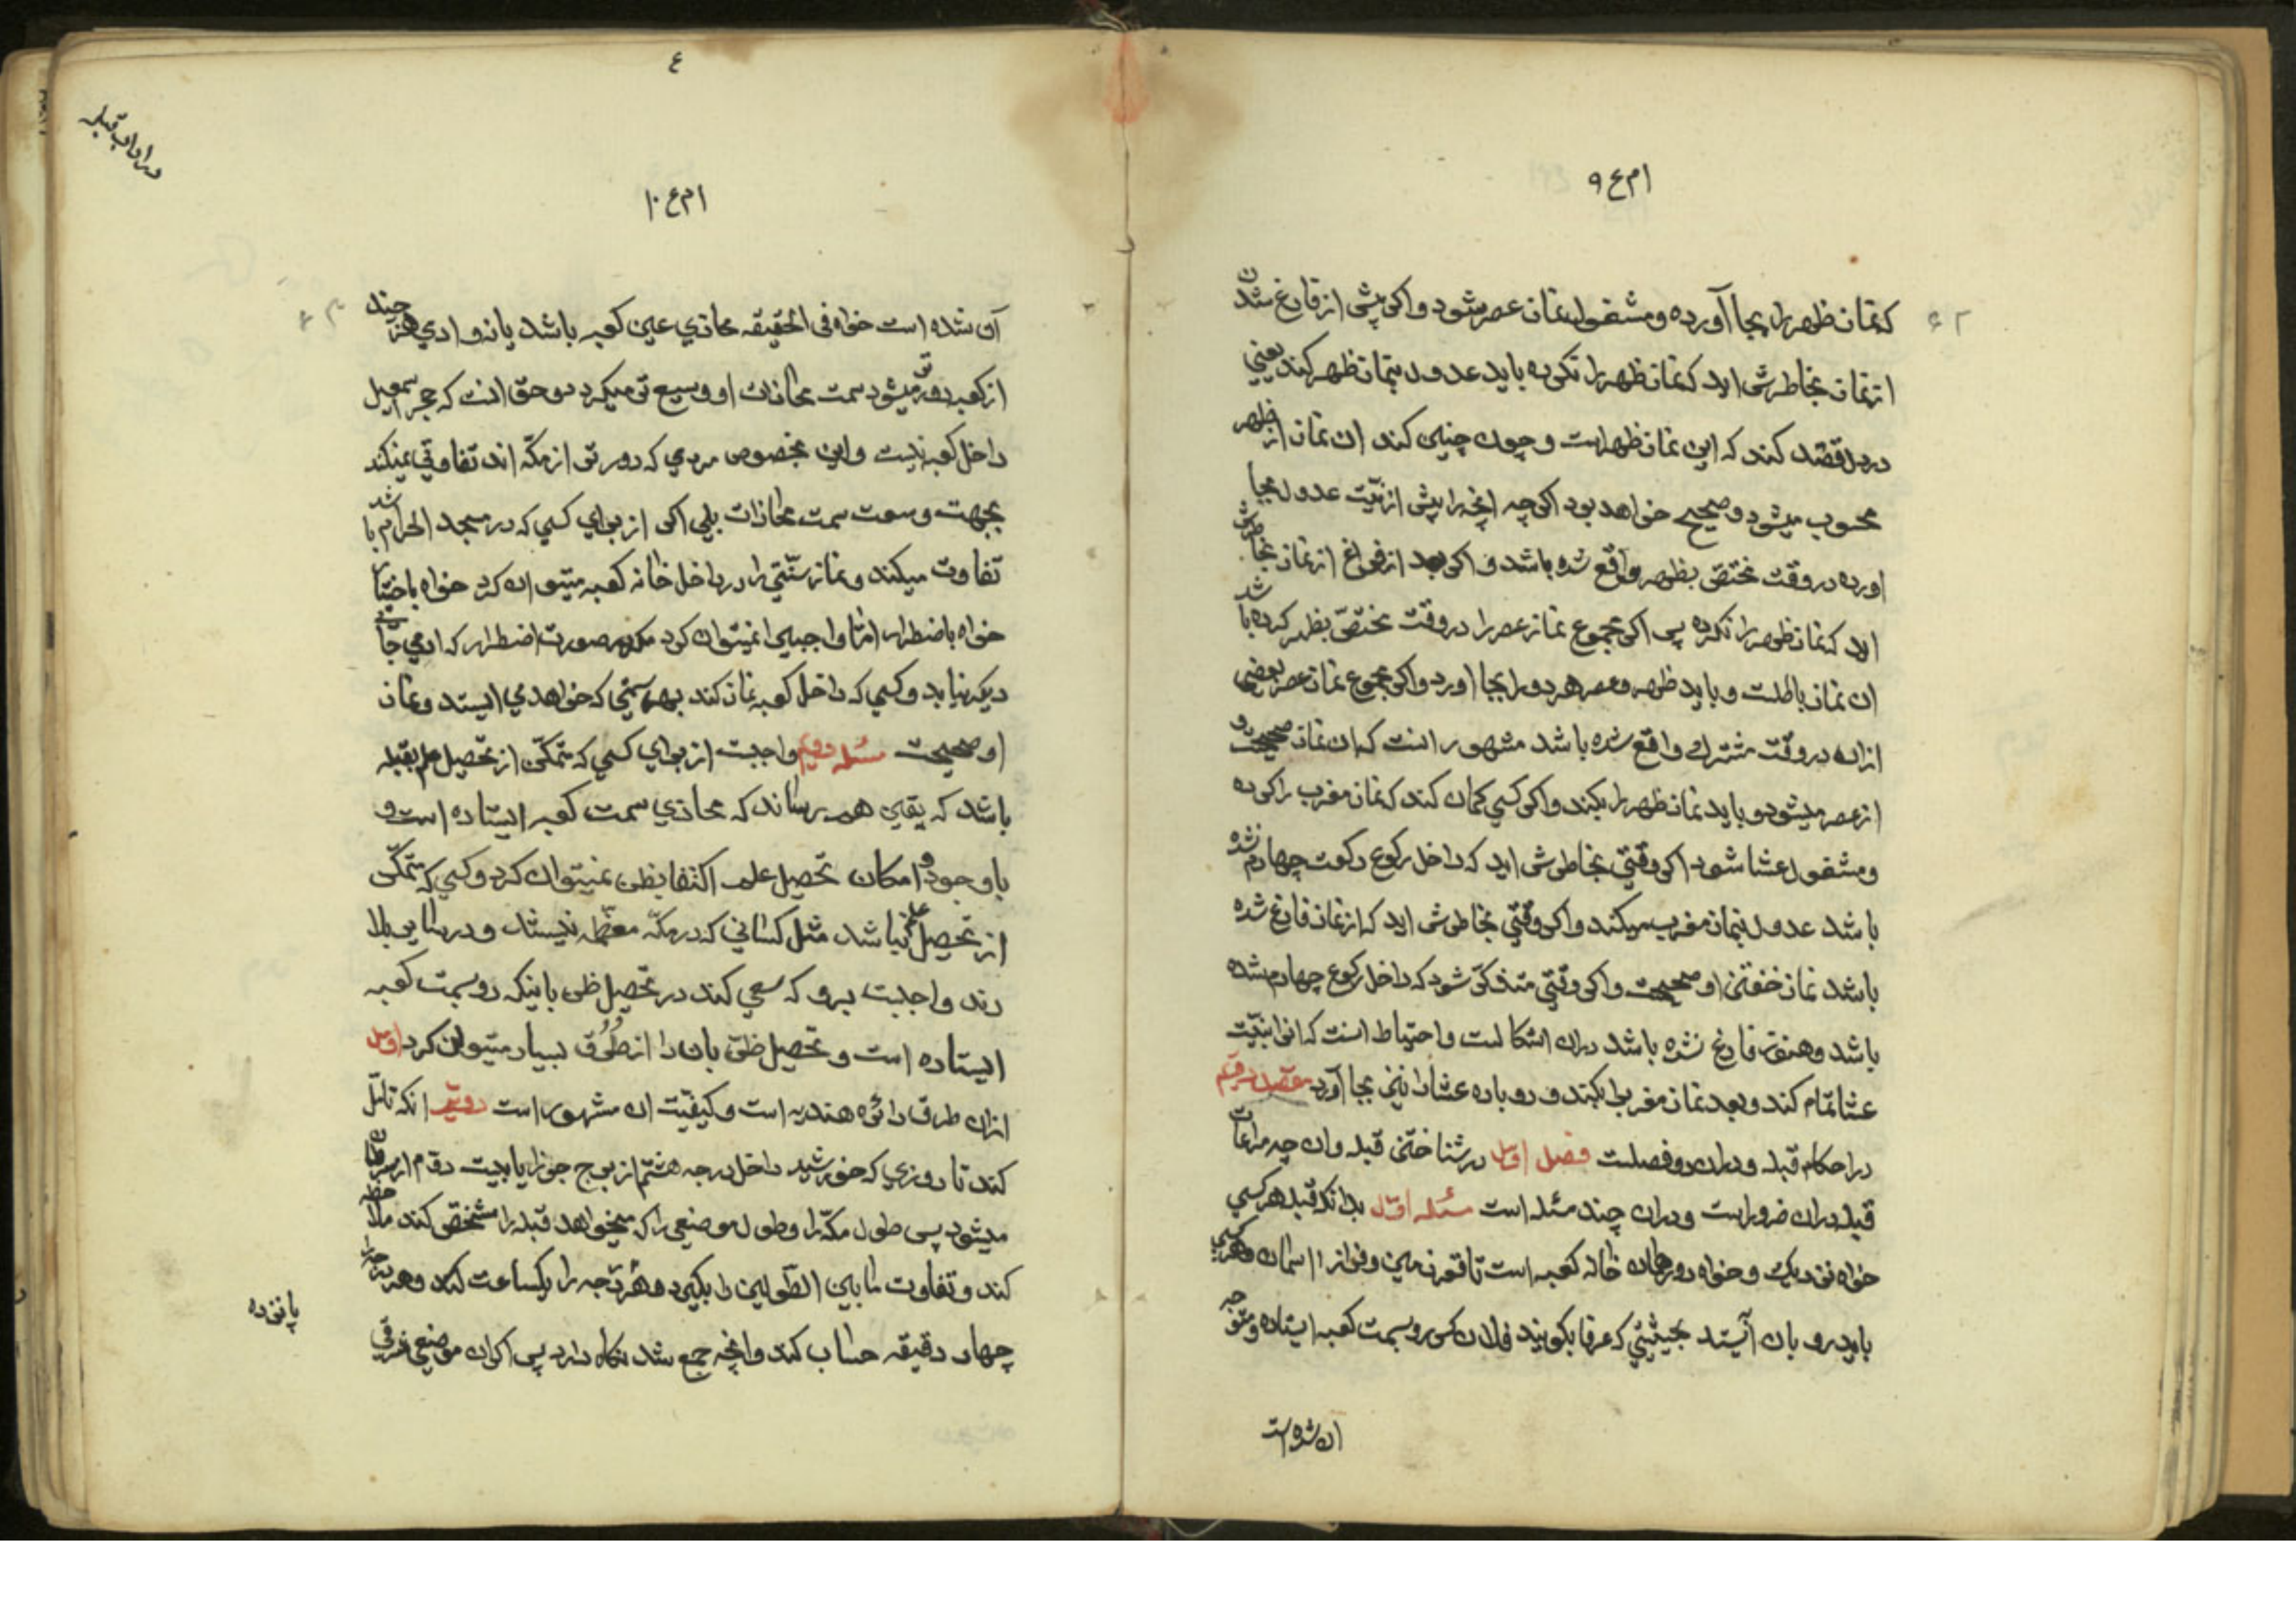 ام ع ۹
که نماز ظهر را بجا آورده و مشغول نماز عصر شود و اکر پیش از فارغ شدن
از نماز بخاطرش اید که نماز ظهر را نکرده باید عدول بنماز ظهر کند یعنی
در دل قصد کند که این نماز ظهر است و چون چنین کند ان نماز از ظهر
محسوب میشود و صحیح خواهد بود اکر چه انچه را پیش از نیّت عدول بجا
اورده در وقت مختصّ بظهر واقع شده باشد و اکر بعد از فراغ از نماز بخاطرش
اید که نماز ظهر را نکرده پس اکر مجموع نماز عصر را در وقت مختصّ بظهر کرده باشد
ان نماز باطلست و باید ظهر و عصر هر دو را بجا اورد و اکر مجموع نماز عصر یا بعضی
ازان در وقت مشترک واقع شده باشد مشهور انست که ان نماز صحیحست و
از عصر میشود و باید نماز ظهر را بکند و اکر کسی کمان کند که نماز مغرب را کرده
و مشغول عشا شود اکر وقتی بخاطرش اید که داخل رکوع رکعت چهارم نشده
باشد عدول بنماز مغرب میکند و اکر وقتی بخاطرش اید که از نماز فارغ شده
باشد نماز خفتن او صحیحست و اکر وقتی متذکّر شود که داخل رکوع چهارم شده
باشد و هنوز فارغ نشده باشد دران اشکالست و احتیاط انست که انرا بنیّت
عشا تمام کند و بعد نماز مغرب را بکند و دوباره عشا را نیز بجا آورد مقصد سیم
در احکام قبله و دران دو فصلست فصل اوّل در شناختن قبله وان چه مراعات
قبله دران ضرور است و دران چند مسئله است مسئله اوّل بدانکه قبله هر کسی
خواه نزدیک و خواه دور همان خانه کعبه است تا قعر زمین و فراز اسمان و هر کسی
باید رو بان آیستد بحیثیتی که عرفا بکویند فلان کس رو بسمت کعبه ایستاده و متوجه
ان شده است
۴
در اداب قبله
ام ع ۱۰
آن شده است خواه فی الحقیقه محاذی عین کعبه باشد یا نه و ادمی هر چند
از کعبه دورتر میشود سمت محاذات او وسیع تر میکردد و حق انست که حجر اسمعیل
داخل کعبه نیست و این بخصوص مردمی که دورتر از مکّه اند تفاوتی نمیکند
بجهت وسعت سمت محاذات بلی اکر از برای کسی که در مسجد الحرام باشد
تفاوت میکند و نماز سنّتی را در داخل خانه کعبه میتوان کرد خواه باختیار
خواه باضطرار امّا واجبی را نمیتوان کرد مکر در صورت اضطرار که ادمی جای
دیکر نیابد و کسی که داخل کعبه نماز کند بهر سمتی که خواهد می ایستد و نماز
او صحیحست مسئله دویم واجبست از برای کسی که متمکّن از تحصیل علم بقبله
باشد که یقین هم رساند که محاذی سمت کعبه ایستاده است و
باوجود امکان تحصیل علم اکتفا بظن نمیتوان کرد و کسی که متمکّن
از تحصیل علم نباشد مثل کسانی که در مکّه معظّمه نیستند و در سایر بلا
دند واجبست برو که سعی کند در تحصیل ظن باینکه رو بسمت کعبه
ایستاده است و تحصیل ظنّ بان را از طُرُق بسیار میتوان کرد اوّل
ازان طرق دائره هندیه است و کیفیّت ان مشهور است دویّم انکه تامّل
کند تا روزی که خورشید داخل درجه هشتم از برج جوزا یا بیست و دوم از سرطان
میشود پس طول مکّه را و طول موضعی را که میخواهد قبله را مشخّص کند ملاحظه
کند و تفاوت مابین الطّولین را بکیرد و هر پانزده درجه را یکساعت کند و هر درجه را
پانزده
چهار دقیقه حساب کند وانچه جمع شد نکاه دارد پس اکر ان موضع شرقی